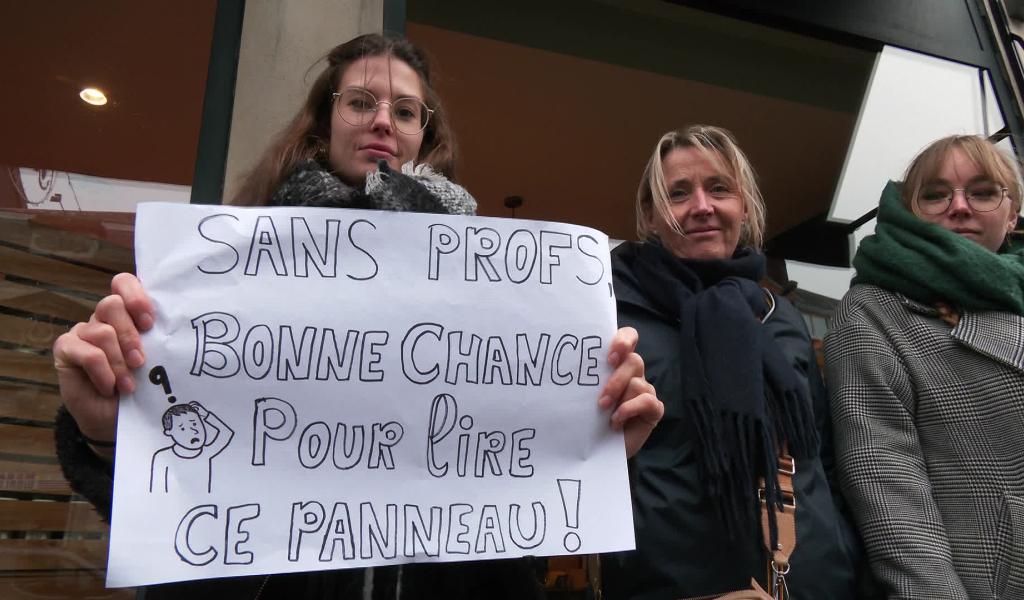 SANS PROFS,
BONNE CHANCE
POUR lIRE
CE PANNEAU!
?